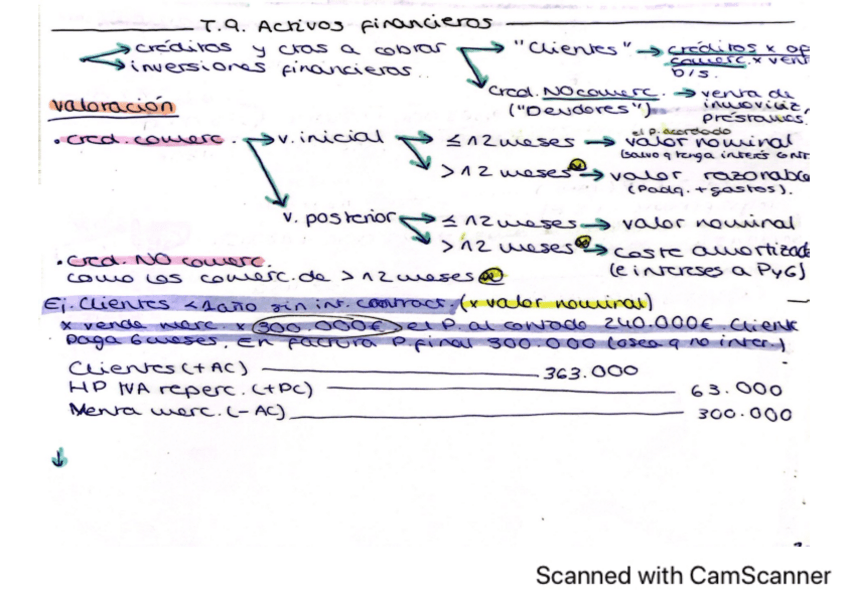 T.9. Activos financieros
créditos y ctas a cobrar
inversiones financieras
"Clientes" → créditos x op
comerc. x vent
b/s.
Cred. NO comerc. → venta de
("Deudores") inmoviliz,
préstamos.
valoración
• cred. comerc. → v. inicial → ≤ 12 meses → valor nominal
el P. acordado
(salvo q tenga interés cont
> 12 meses → valor razonable
(Padq. + gastos).
v. posterior → ≤ 12 meses → valor nominal
> 12 meses → coste amortizad
(e intereses a PyG)
• cred. NO comerc.
como los comerc. de > 12 meses
Ej. Clientes < 1 año sin int. contract. (x valor nominal)
x vende merc. x 300.000€, el P. al contado 240.000€. Client
paga 6 meses. En factura P. final 300.000 (osea q no inter.)
Clientes (+AC) 363.000
HP IVA reperc. (+PC) 63.000
Menta merc. (-AC) 300.000
Scanned with CamScanner